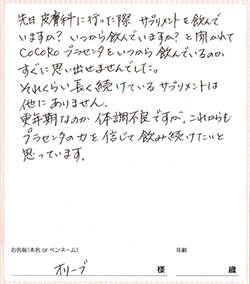 先日 皮膚科に行った際 サプリメントを飲んで
いますか？いつから飲んでいますか？と聞かれて
CoCoRo プラセンタをいつから飲んでいるのか
すぐに思い出せませんでした。
それくらい長く続けているサプリメントは
他にありません。
更年期なのか 体調不良ですが、これからも
プラセンタの力を信じて飲み続けたいと
思っています。
お名前(本名 or ペンネーム) 年齢
オリーブ 様 歳